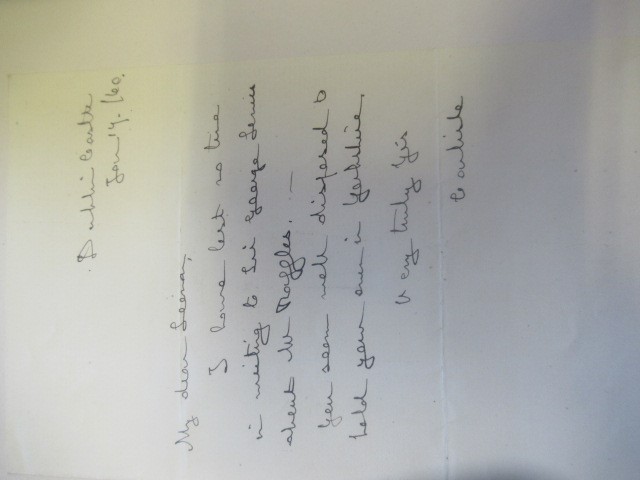 Dublin Castle
Jan 17. /60.
My dear
I have lost no time
in writing to Sir George Lewis
about Mr Raffles. —
You seem well disposed to
hold your own in Yorkshire.
Very truly Yrs
Carlisle